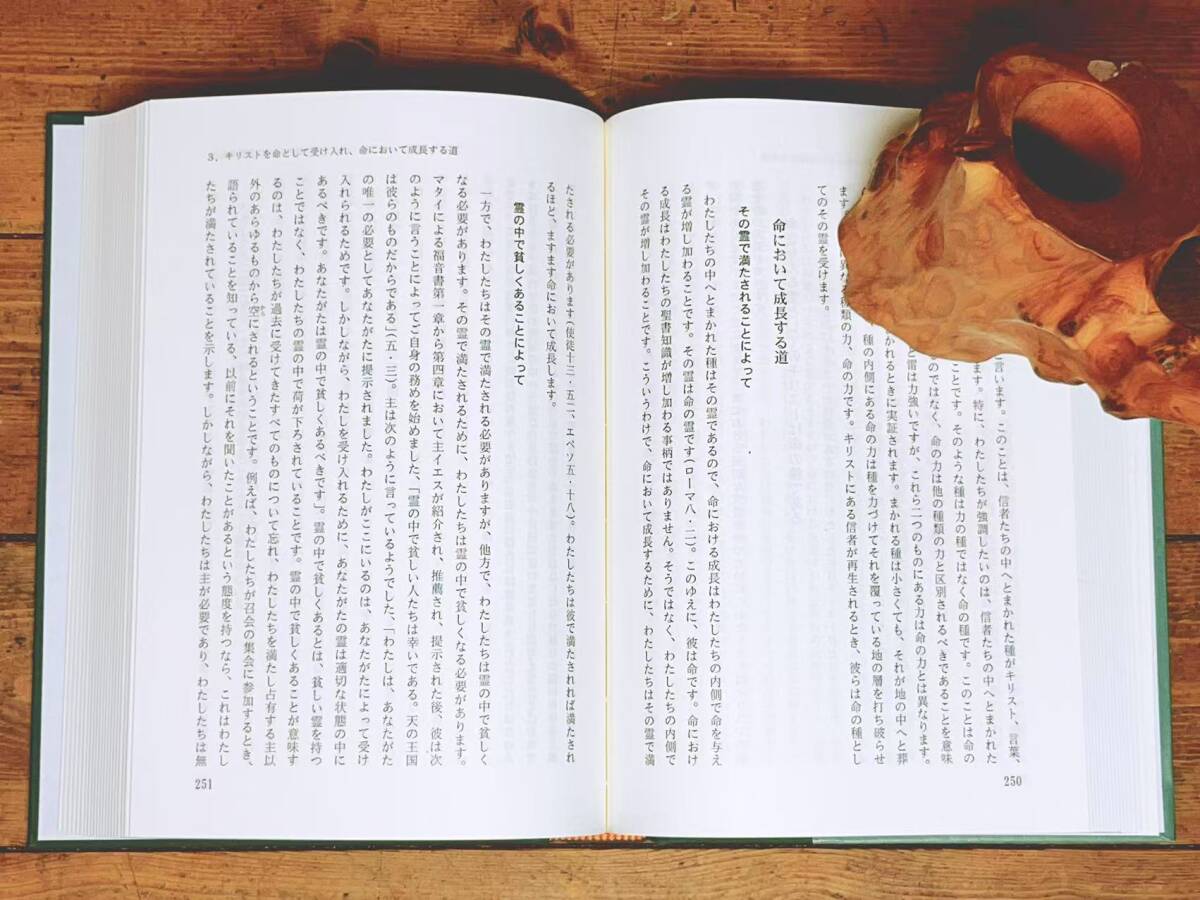 と言います。このことは、信者たちの中へとまかれた種がキリスト、言葉、
ます。特に、わたしたちが強調したいのは、信者たちの中へとまかれた
ことです。そのような種は力の種ではなく命の種です。このことは命の
のではなく、命の力は他の種類の力と区別されるべきであることを意味
と雷は力強いですが、これら二つのものにある力は命の力とは異なります。
かれるときに実証されます。まかれる種は小さくても、それが地の中へと葬
種の内側にある命の力は種を力づけてそれを覆っている地の層を打ち破らせ
種類の力、命の力です。キリストにある信者が再生されるとき、彼らは命の種とし
てのその霊を受けます。
命において成長する道
その霊で満たされることによって
わたしたちの中へとまかれた種はその霊であるので、命における成長はわたしたちの内側で命を与え
る霊が増し加わることです。その霊は命の霊です(ローマ八・二)。このゆえに、彼は命です。命におけ
る成長はわたしたちの聖書知識が増し加わる事柄ではありません。そうではなく、わたしたちの内側で
その霊が増し加わることです。こういうわけで、命において成長するために、わたしたちはその霊で満
250
3、キリストを命として受け入れ、命において成長する道
たされる必要があります(使徒十三・五二、エペソ五・十八)。わたしたちは彼で満たされれば満たされ
るほど、ますます命において成長します。
霊の中で貧しくあることによって
一方で、わたしたちはその霊で満たされる必要がありますが、他方で、わたしたちは霊の中で貧しく
なる必要があります。その霊で満たされるために、わたしたちは霊の中で貧しくなる必要があります。
マタイによる福音書第一章から第四章において主イエスが紹介され、推薦され、提示された後、彼は次
のように言うことによってご自身の務めを始めました、「霊の中で貧しい人たちは幸いである。天の王国
は彼らのものだからである」(五・三)。主は次のように言っているようでした、「わたしは、あなたがた
の唯一の必要としてあなたがたに提示されました。わたしがここにいるのは、あなたがたによって受け
入れられるためです。しかしながら、わたしを受け入れるために、あなたがたの霊は適切な状態の中に
あるべきです。あなたがたは霊の中で貧しくあるべきです」。霊の中で貧しくあるとは、貧しい霊を持つ
ことではなく、わたしたちの霊の中で荷が下ろされていることです。霊の中で貧しくあることが意味す
るのは、わたしたちが過去に受けてきたすべてのものについて忘れ、わたしたちを満たし占有する主以
外のあらゆるものから空にされるということです。例えば、わたしたちが召会の集会に参加するとき、
語られていることを知っている、以前にそれを聞いたことがあるという態度を持つなら、これはわたし
たちが満たされていることを示します。しかしながら、わたしたちは主が必要であり、わたしたちは無
251